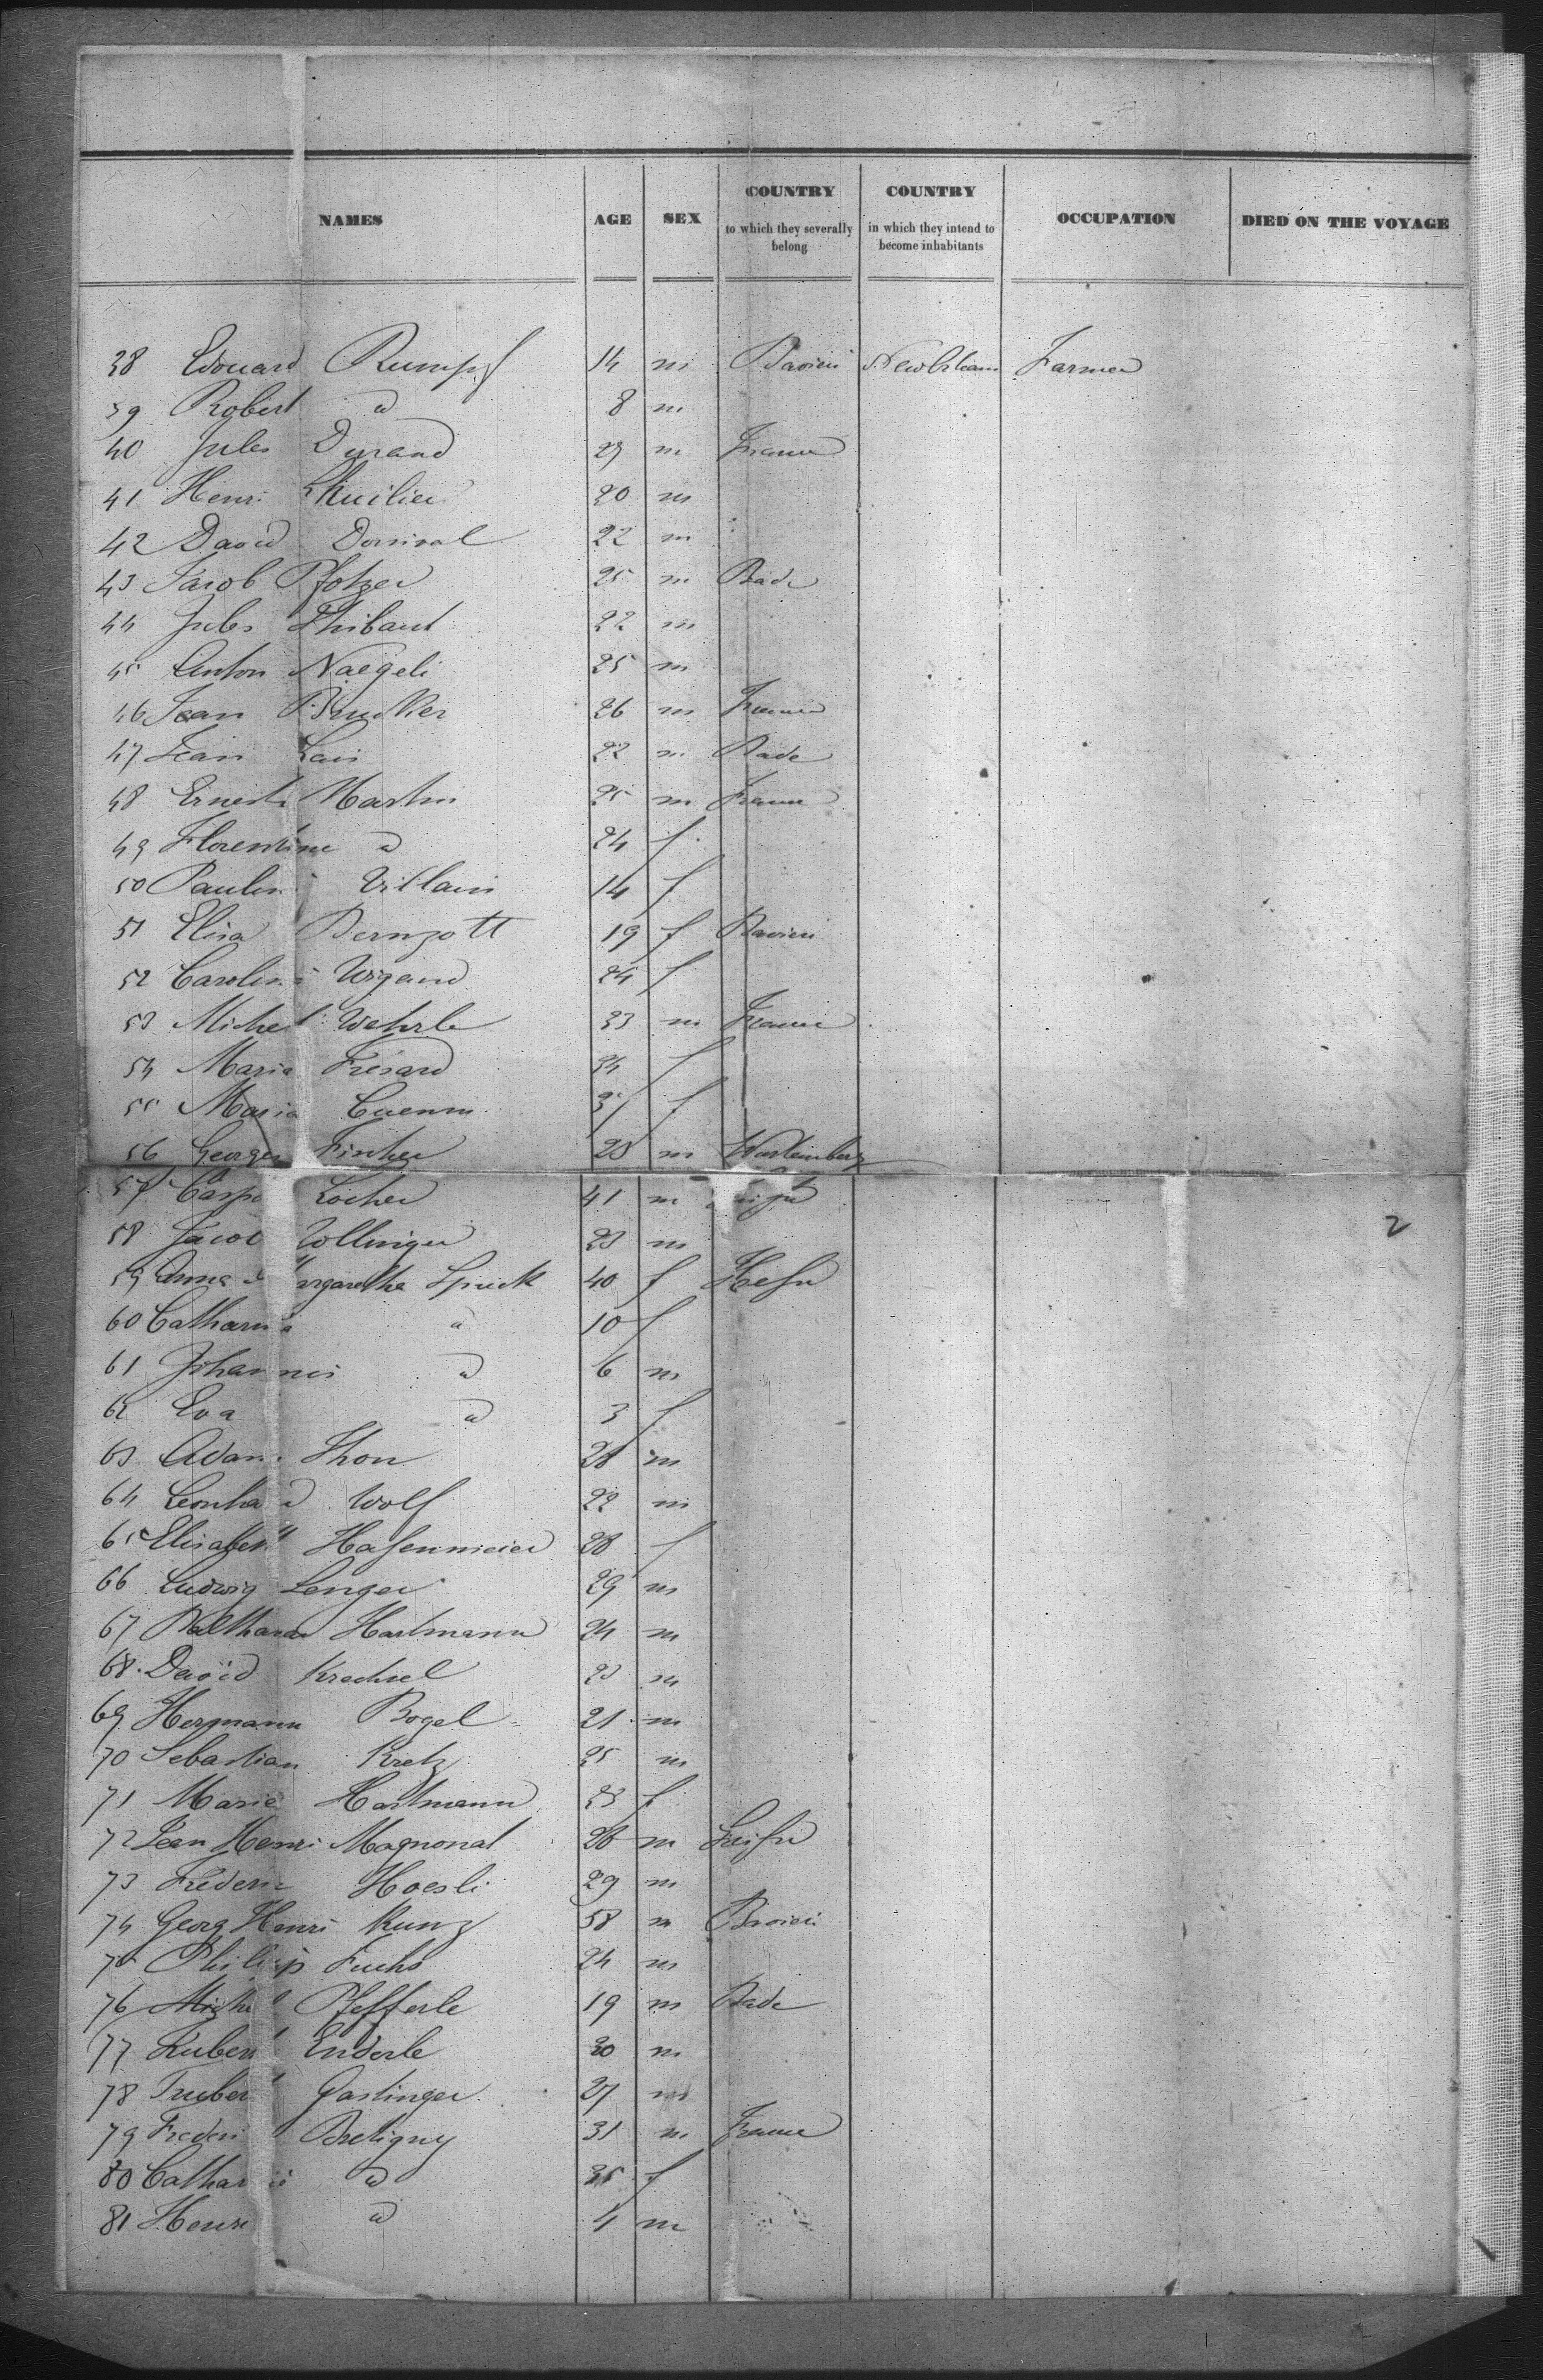 NAMES AGE SEX COUNTRY to which they severally belong COUNTRY in which they intend to become inhabitants OCCUPATION DIED ON THE VOYAGE
38 Edouard Rumpf 14 m Bavieri New Orleans Farmer
39 Robert d 8 m
40 Jules Durand 29 m France
41 Henri Lhuilier 20 m
42 David Dorsival 22 m
43 Jacob Pfotzer 25 m Bade
44 Jules Thibaut 22 m
45 Anton Naegeli 25 m
46 Jean Brucker 26 m France
47 Jean Lais 22 m Bade
48 Ernest Martin 25 m France
49 Florentine d 24 f
50 Paulin Villain 14 f
51 Elisa Bernzott 19 f Bavieri
52 Carolin Wigand 24 f
53 Michel Wehrle 33 m France
54 Maria Frésard 34 f
55 Maria Cuenin f
56 Georges Fischer 28 m Wurtemberg
57 Casp Locher 41 m
58 Jacob Zollinger 23 m
59 Anna Margaretha Spuck 40 f Hesse
60 Catharina d 10 f
61 Johannes d 6 m
62 Eva d 3 f
63 Adam Thon 28 m
64 Leonhard Wolf 22 m
65 Elisabeth Hasenmeier 28 f
66 Ludwig Lenger 29 m
67 Balthasar Hartmann 24 m
68 David Krechel 23 m
69 Hermann Bogel 21 m
70 Sebastian Kretz 25 m
71 Marie Hartmann 23 f
72 Jean Henri Magnonat 26 m Suisse
73 Frederic Hoesli 29 m
74 Georg Henri Kunz 58 m Bavieri
75 Philipp Fuchs 24 m
76 Michel Pfefferle 19 m Bade
77 Kubert Enderle 30 m
78 Truber Gastinger 27 m
79 Frederi Bretigny 31 m France
80 Cathar d 35 f
81 Henri d 4 m
2